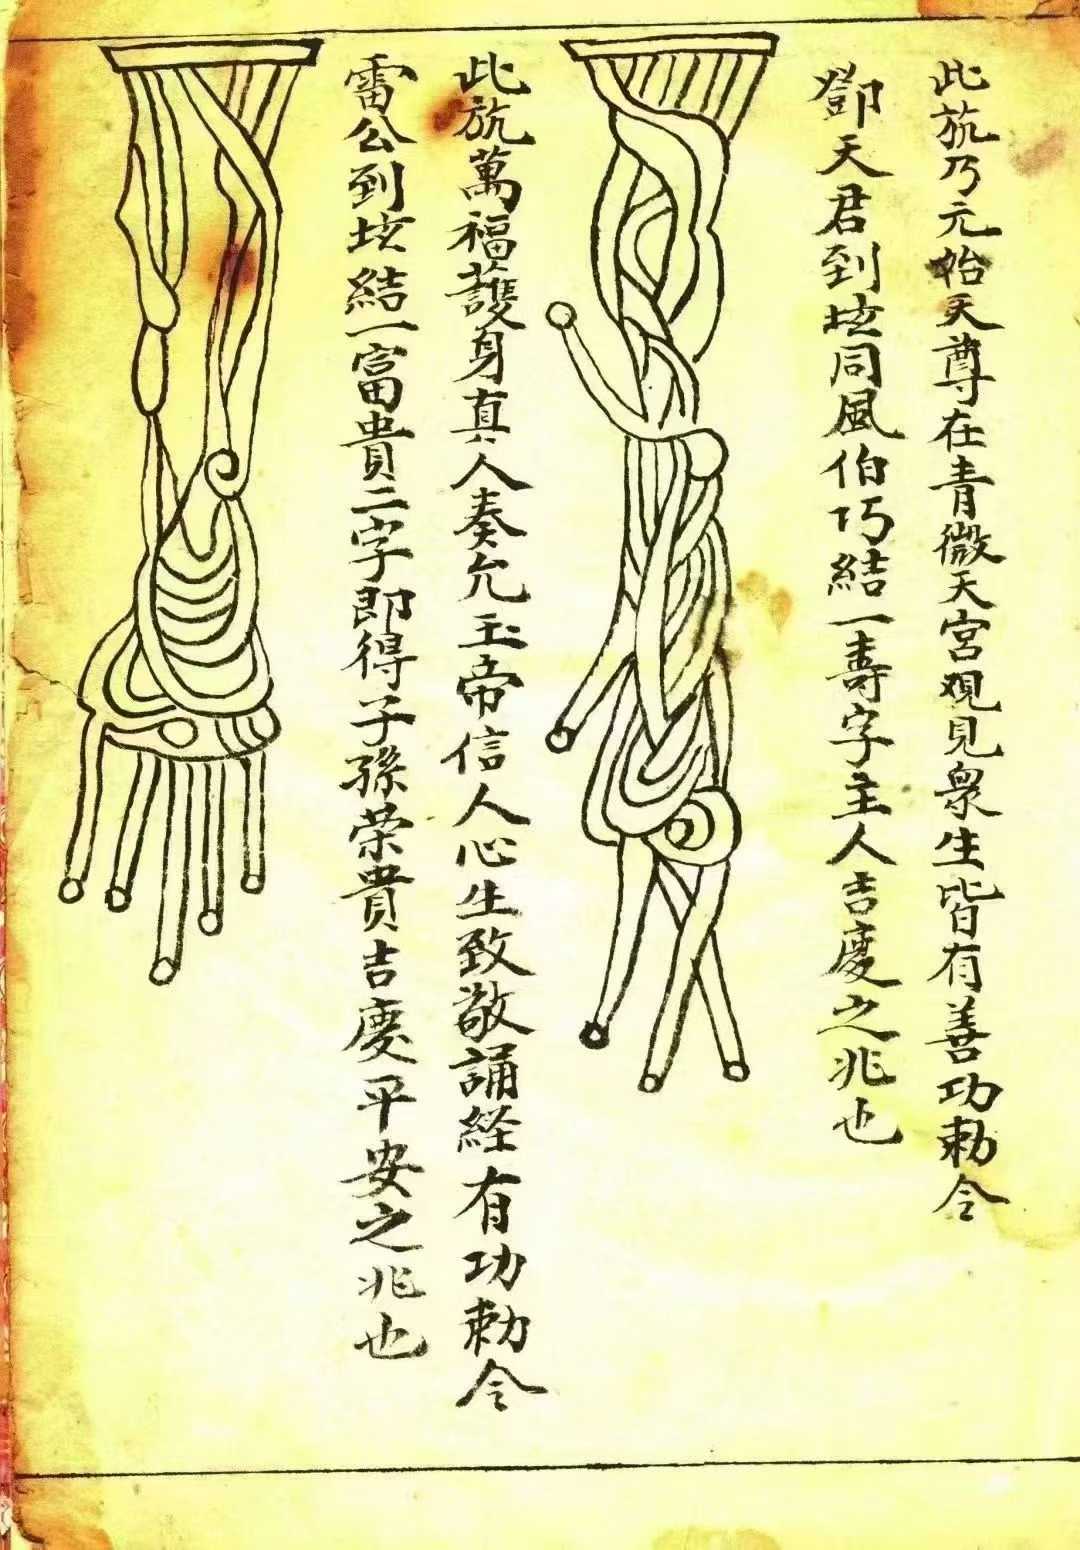 此旊乃元始天尊在青微天宮观見衆生皆有善功勅令
鄧天君到坛同風伯巧結一壽字主人吉慶之兆也
此旊萬福護身真人奏允玉帝信人心生致敬誦経有功勅令
雷公到坛結一富貴二字即得子孫荣貴吉慶平安之兆也